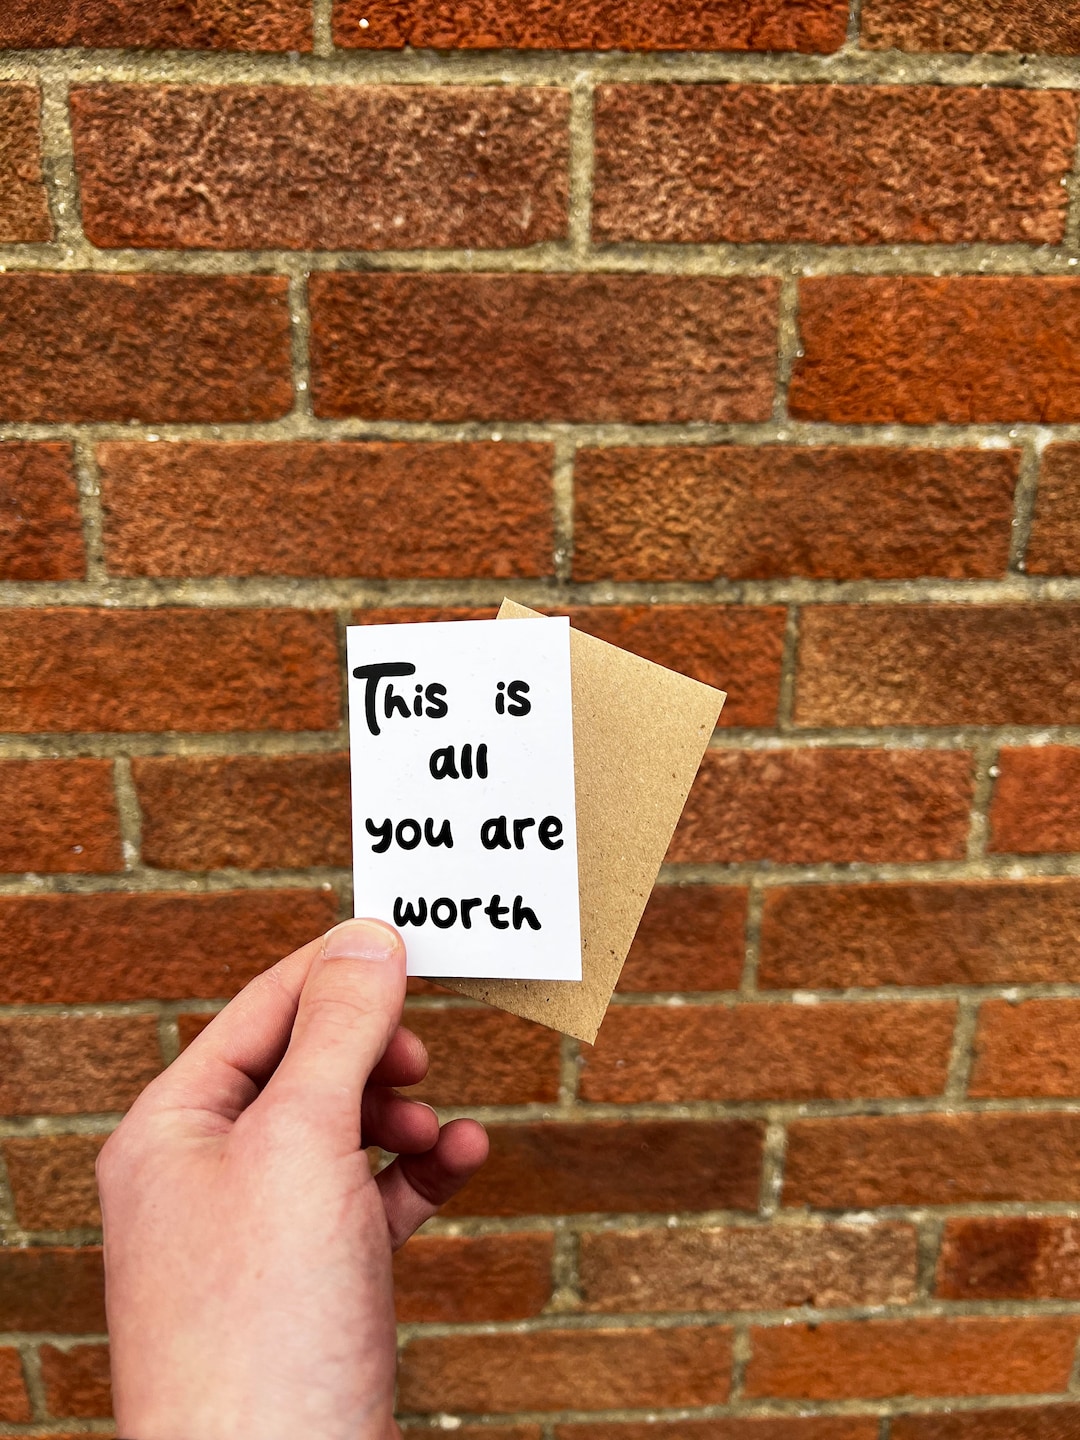 This is
all
you are
worth